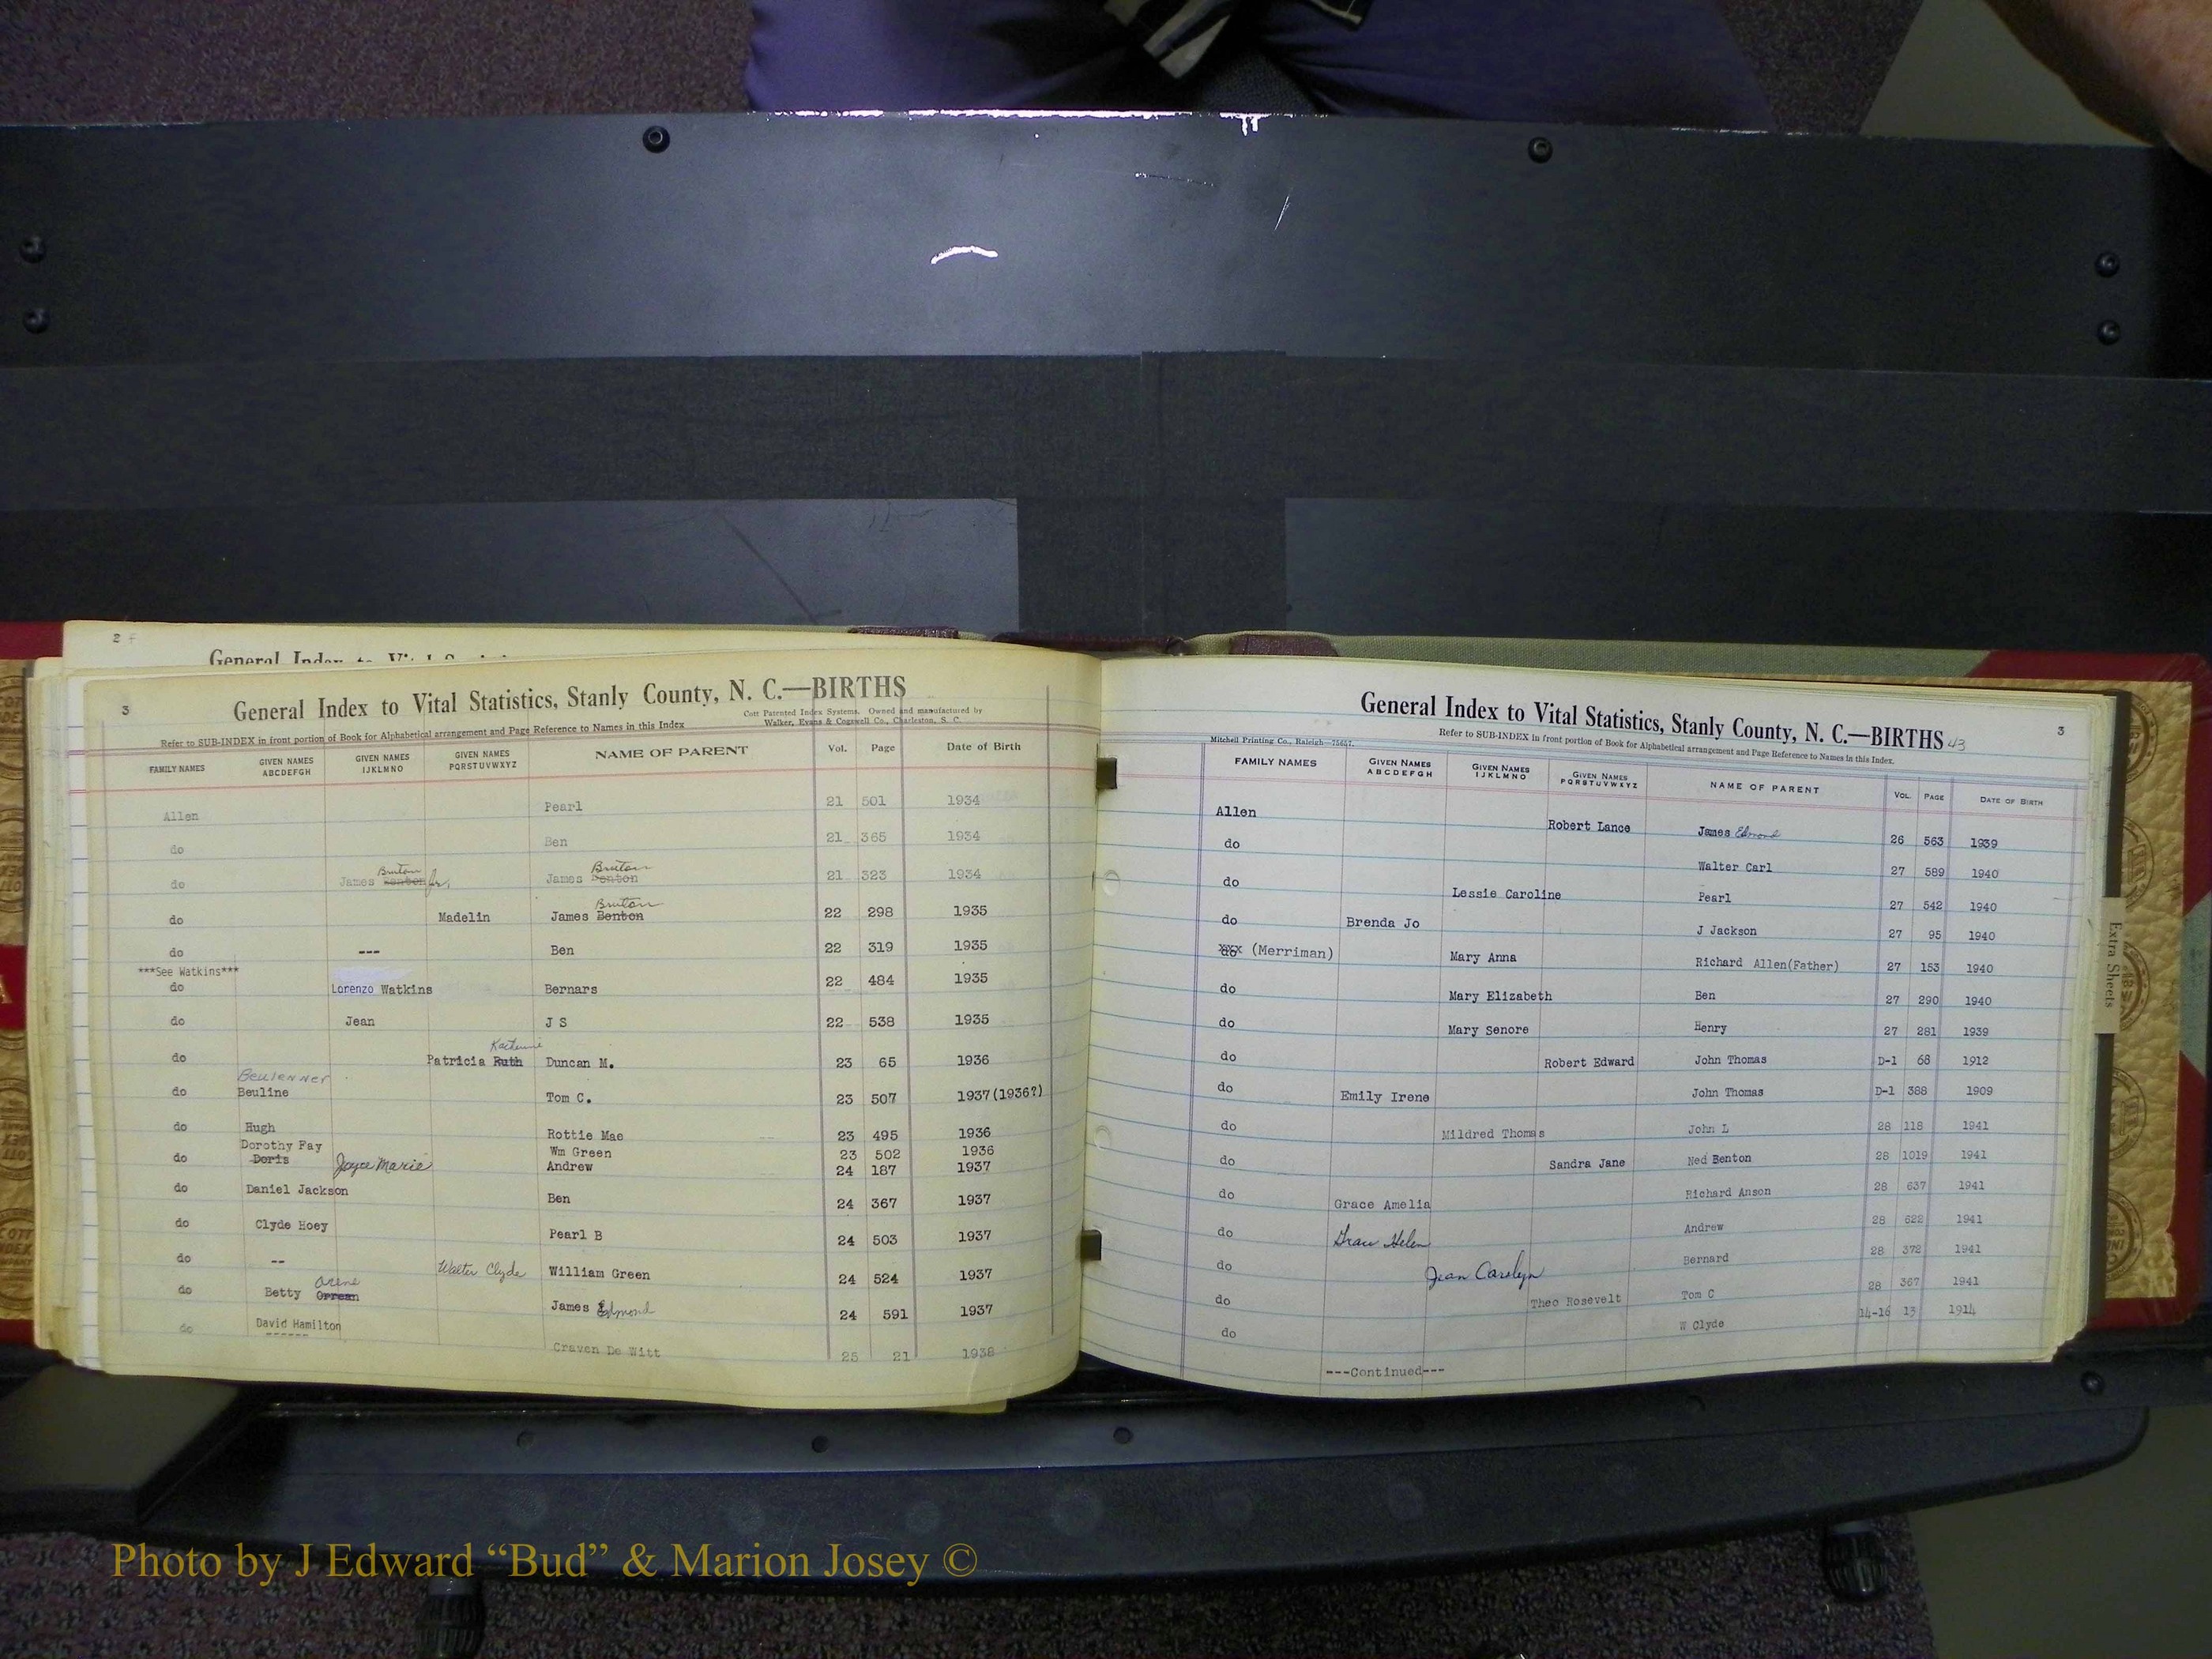 2
General Index to Vital Statistics
3
General Index to Vital Statistics, Stanly County, N. C.—BIRTHS
Cott Patented Index Systems. Owned and manufactured by
Walker, Evans & Cogswell Co., Charleston, S. C.
Refer to SUB-INDEX in front portion of Book for Alphabetical arrangement and Page Reference to Names in this Index
FAMILY NAMES GIVEN NAMES ABCDEFGH GIVEN NAMES IJKLMNO GIVEN NAMES PQRSTUVWXYZ NAME OF PARENT Vol. Page Date of Birth
Allen Pearl 21 501 1934
do Ben 21 365 1934
Bruton Bruton
do James Benton Jr. James Benton 21 323 1934
Bruton
do Madelin James Benton 22 298 1935
do --- Ben 22 319 1935
***See Watkins***
do Lorenzo Watkins Bernars 22 484 1935
do Jean J S 22 538 1935
do Patricia Ruth Duncan M. 23 65 1936
Beulenner
do Beuline Tom C. 23 507 1937(1936?)
do Hugh Rottie Mae 23 495 1936
Dorothy Fay Wm Green 23 502 1936
do Doris Joyce Marie Andrew 24 187 1937
do Daniel Jackson Ben 24 367 1937
do Clyde Hoey Pearl B 24 503 1937
do -- Walter Clyde William Green 24 524 1937
Orene
do Betty Orrean James Edmond 24 591 1937
do David Hamilton Craven De Witt 25 21 1938
------
General Index to Vital Statistics, Stanly County, N. C.—BIRTHS 43
3
Mitchell Printing Co., Raleigh—75657.
Refer to SUB-INDEX in front portion of Book for Alphabetical arrangement and Page Reference to Names in this Index.
FAMILY NAMES GIVEN NAMES ABCDEFGH GIVEN NAMES IJKLMNO GIVEN NAMES PQRSTUVWXYZ NAME OF PARENT VOL. PAGE DATE OF BIRTH
Allen Robert Lance James Edmond 26 563 1939
do Walter Carl 27 589 1940
do Lessie Caroline Pearl 27 542 1940
do Brenda Jo J Jackson 27 95 1940
xxx do (Merriman) Mary Anna Richard Allen(Father) 27 153 1940
do Mary Elizabeth Ben 27 290 1940
do Mary Senore Henry 27 281 1939
do Robert Edward John Thomas D-1 68 1912
do Emily Irene John Thomas D-1 388 1909
do Mildred Thomas John L 28 118 1941
do Sandra Jane Ned Benton 28 1019 1941
do Grace Amelia Richard Anson 28 637 1941
do Helen Andrew 28 622 1941
do Jean Carolyn Bernard 28 372 1941
do Theo Rosevelt Tom C 28 367 1941
do W Clyde 14-16 13 1914
---Continued---
Extra Sheets
Photo by J Edward “Bud” & Marion Josey ©